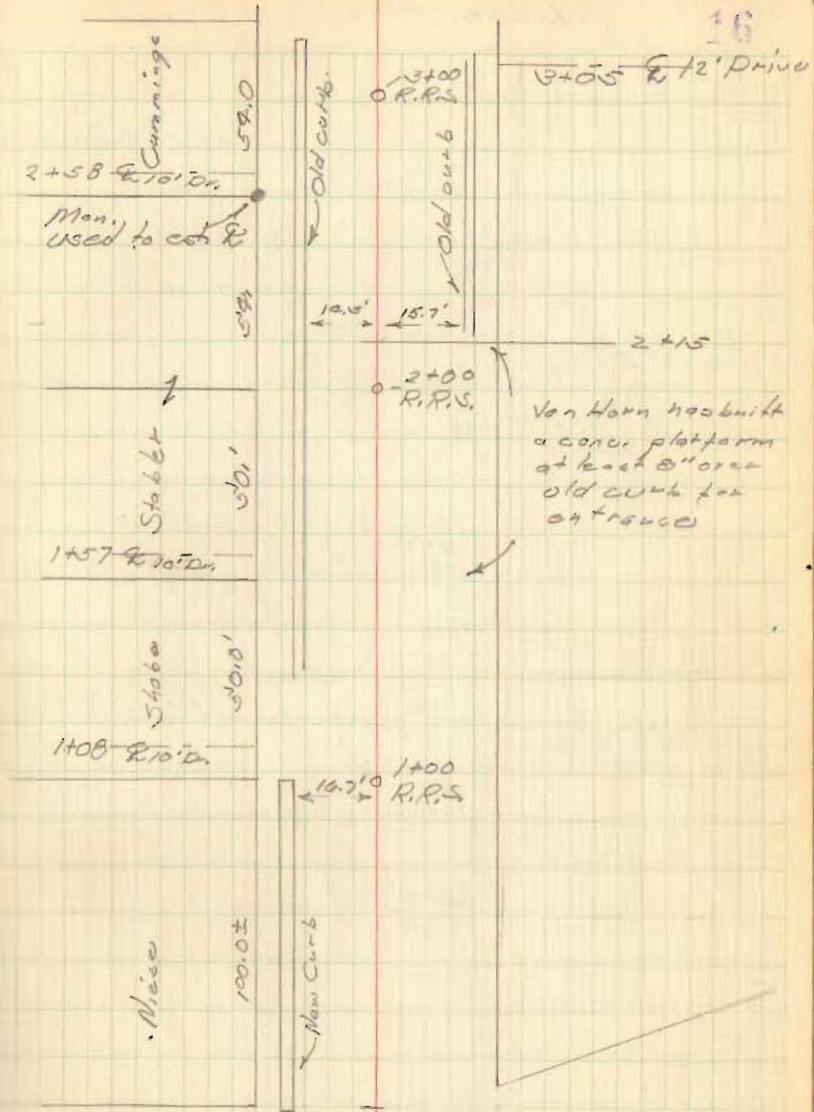 16
3+05 ℄ 12' Drive
Cummings
54.0
Old curb.
3+00
R.R.S
Old curb
2+58 ℄ 10' Dr.
Mon.
used to est. ℄
54.
14.5'
15.7'
2+15
2+00
R.R.S.
Van Horn has built
a conc. platform
at least 8" over
old curb for
entrance
50.'
1+57 ℄ 10' Dr.
50.0'
1+08 ℄ 10' Dr.
16.7'
1+00
R.R.S
Niese
100.0±
New Curb